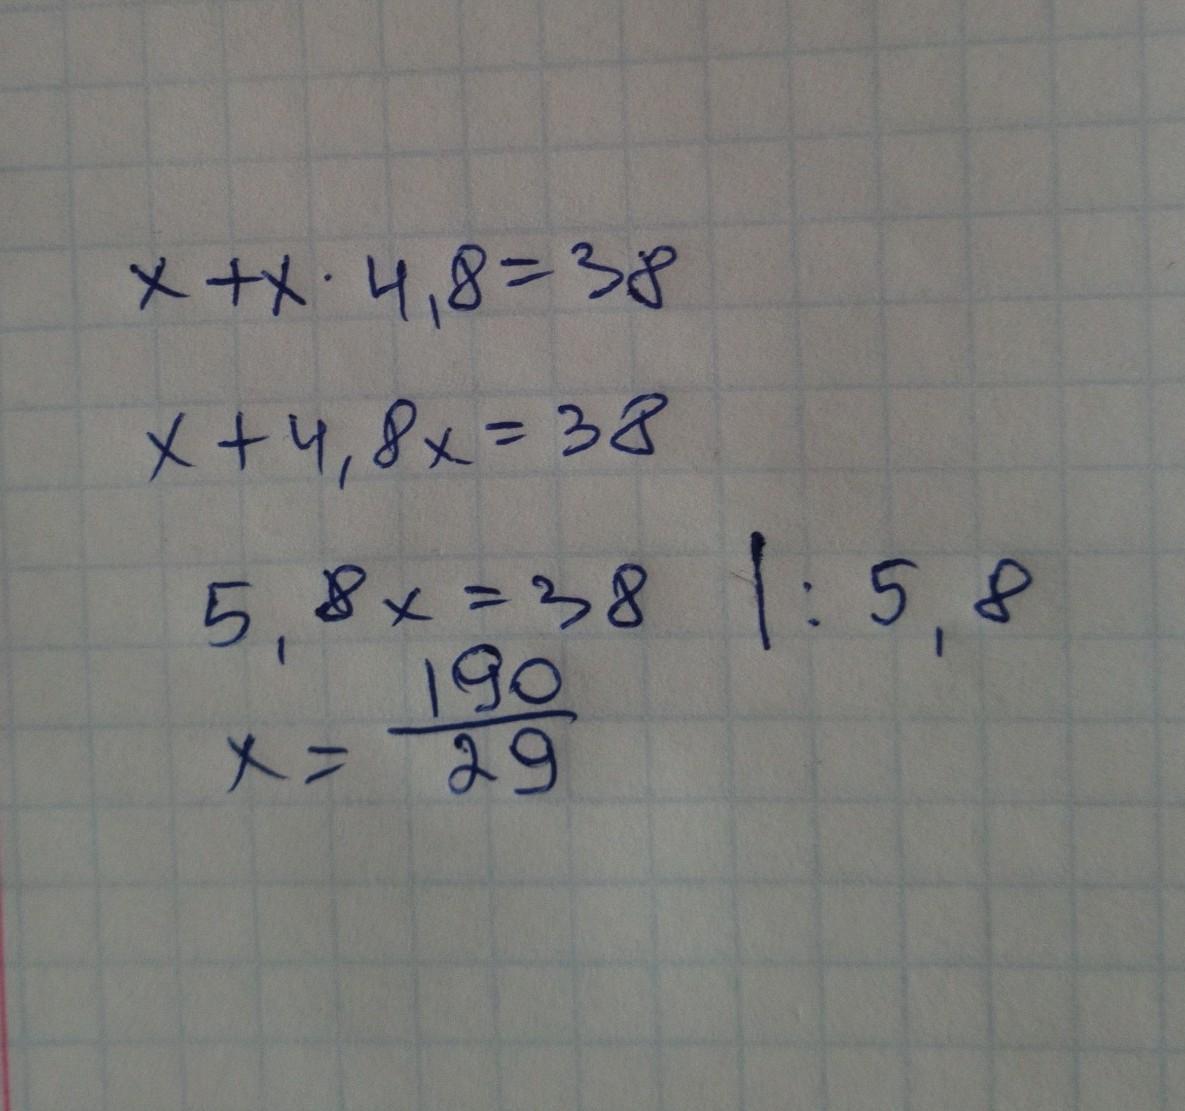 x+x· 4,8=38
x+4,8x=38
5,8x=38 |: 5,8
x= 190/29